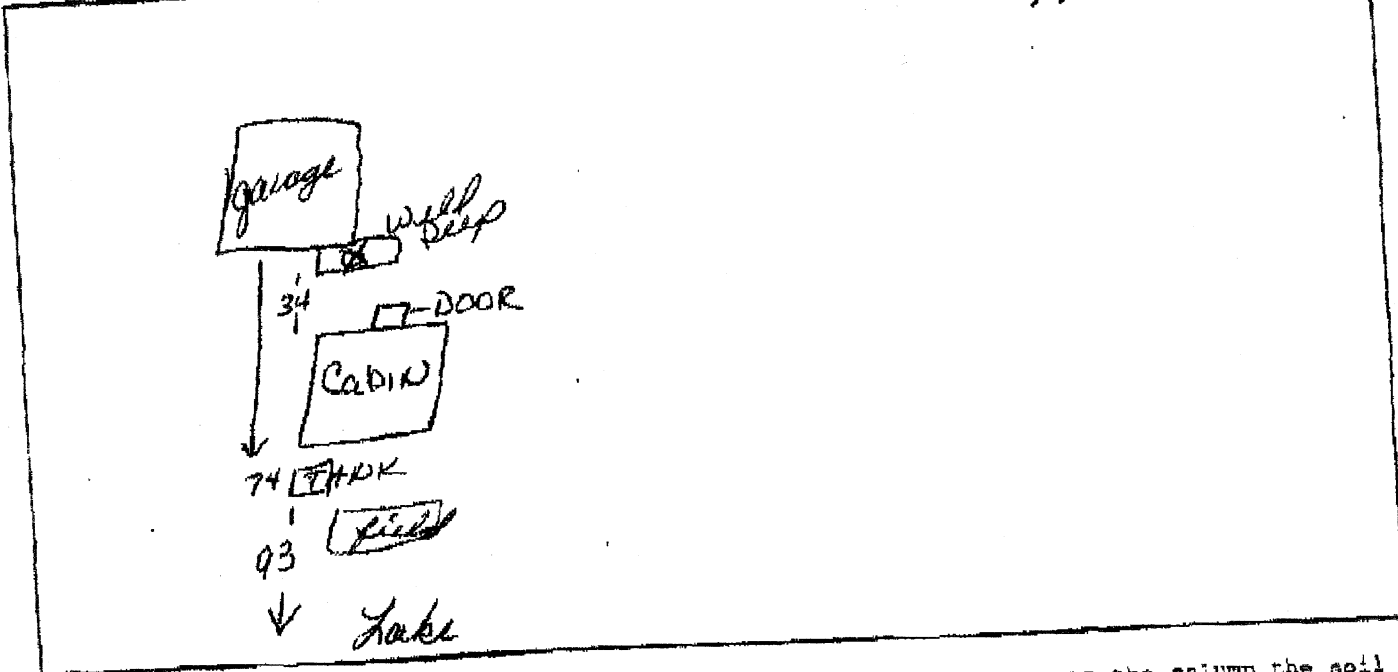 garage
Well
Deep
34
DOOR
CABIN
74 TANK
field
93
Lake
the column the soil